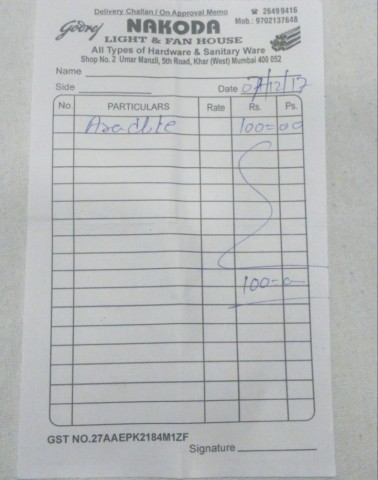 Delivery Challan / On Approval Memo ☎ 26499416
Godrej NAKODA Mob.: 9702137648
LIGHT & FAN HOUSE
All Types of Hardware & Sanitary Ware
Shop No. 2 Umar Manzil, 5th Road, Khar (West) Mumbai 400 052
Name
Side Date 07/12/17
No. PARTICULARS Rate Rs. Ps.
Aradite 100=00
100=0
GST NO.27AAEPK2184M1ZF
Signature